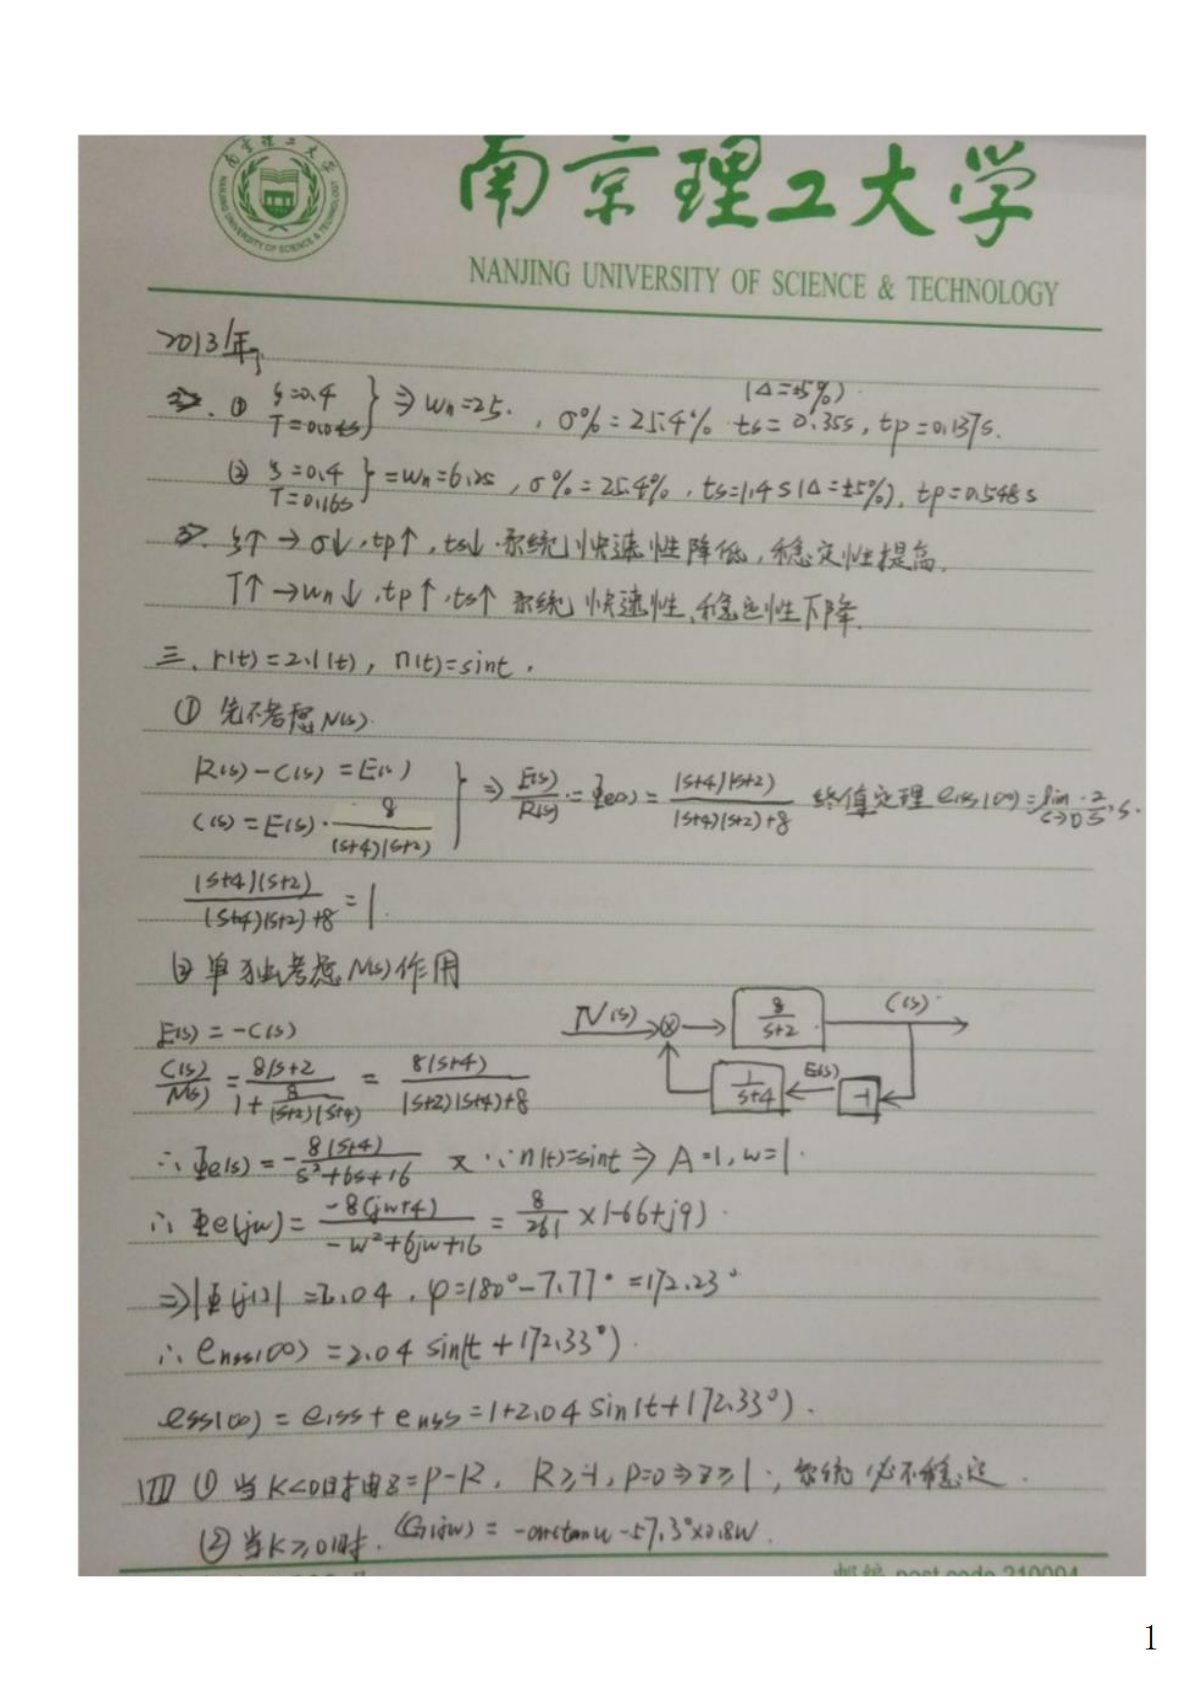 南京理工大学
NANJING UNIVERSITY OF SCIENCE & TECHNOLOGY
南京理工大学
NANJING UNIVERSITY OF SCIENCE & TECHNOLOGY
2013年
二. ① ξ=0.4 T=0.04s } ⇒ Wn=25. , σ%=25.4% ts=0.35s (Δ=±5%), tp=0.137s.
② ξ=0.4 T=0.16s } =Wn=6.25 , σ%=25.4% , ts=1.4s(Δ=±5%), tp=0.548s
ξ↑ → σ↓, tp↑, ts↓. 系统快速性降低, 稳定性提高.
T↑ → wn↓, tp↑, ts↑ 系统快速性、稳定性下降.
三、r(t)=2·1(t), n(t)=sint.
① 先不考虑N(s).
R(s)-C(s)=E(s)
C(s)=E(s)·8/((s+4)(s+2)) } ⇒ E(s)/R(s)=Φe(s)=(s+4)(s+2)/((s+4)(s+2)+8) 终值定理 e1ss(∞)=lim s→0 2/s·s·
(s+4)(s+2)/((s+4)(s+2)+8)=1.
② 单独考虑N(s)作用
N(s) ⊗ 8/(s+2) C(s)
E(s)=-C(s)
1/(s+4) E(s) -1
C(s)/N(s)=(8/s+2)/(1+8/((s+2)(s+4)))=8(s+4)/((s+2)(s+4)+8)
∴Φe(s)=-8(s+4)/(s²+6s+16) 又∵n(t)=sint ⇒ A=1, w=1.
∴Φe(jw)=-8(jw+4)/(-w²+6jw+16)=8/261×(-66+j9).
⇒|Φ(j1)|=2.04, φ=180°-7.77°=172.23°
∴enss(∞)=2.04 sin(t+172.33°).
ess(∞)=e1ss+enss=1+2.04 sin(t+172.33°).
四 ① 当K<0时由Z=P-R, R≥-1, P=0⇒Z≥1; 系统必不稳定.
② 当K≥0时. ∠G(jw)=-arctanw-57.3°×0.8w.
post code 210094
1